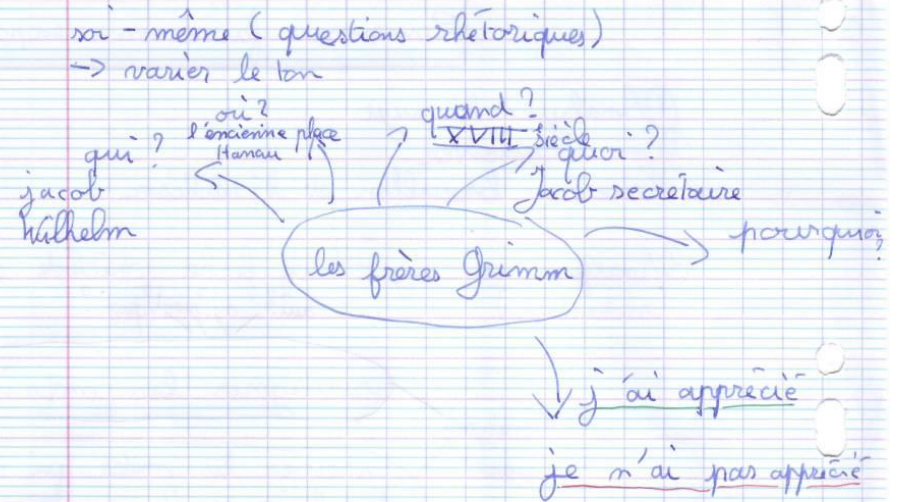 soi-même (questions rhétoriques)
-> varier le ton
où ?
l'encienne place
Hanau
quand ?
XVIII siècle
qui ?
jacob
Wilhelm
quoi ?
Jacob secretaire
pourquoi ?
les frères Grimm
j'ai apprécié
je n'ai pas apprécié